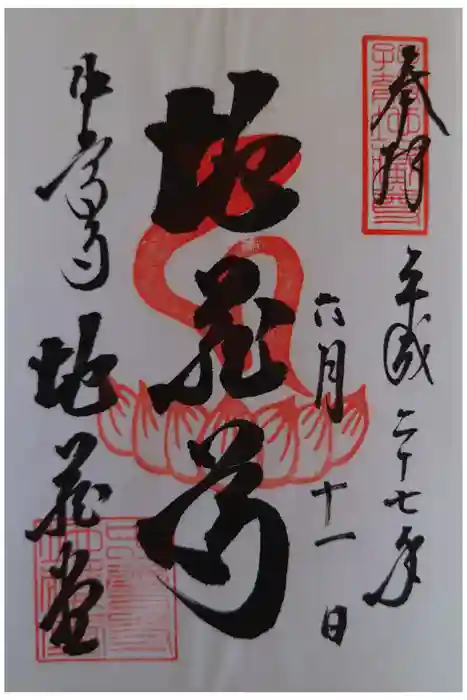 奉拝
平成二十七年
六月十一日
地蔵尊
中尊寺
地蔵堂